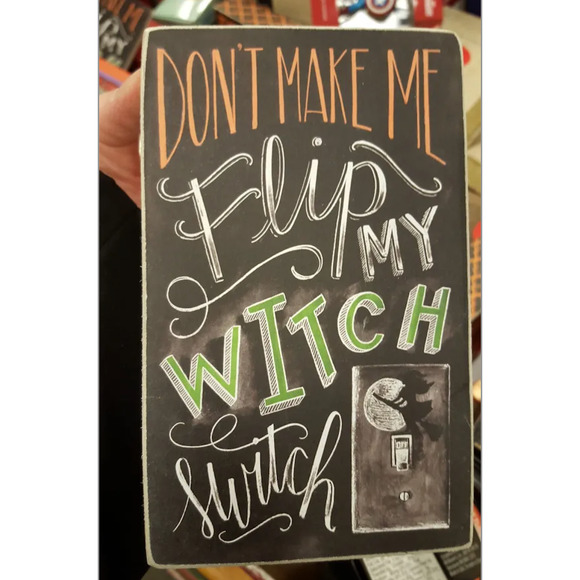 DON'T MAKE ME
Flip
MY
WITCH
switch
OFF